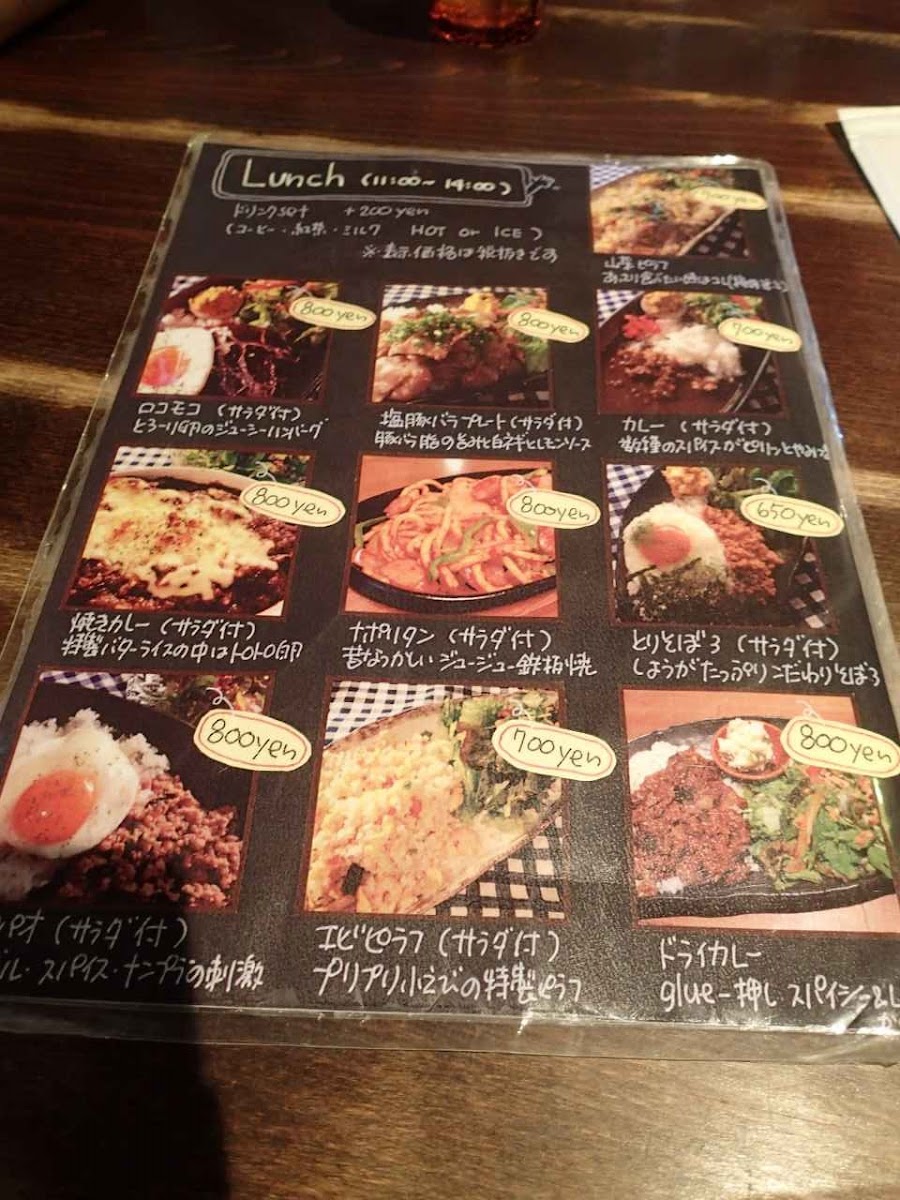 Lunch (11:00~14:00)
ドリンクset +200yen
(コーヒー・紅茶・ミルク HOT or ICE)
※表示価格は税抜きです
山菜ピラフ
800yen
800yen
700yen
ロコモコ (サラダ付)
とろーり卵のジューシーハンバーグ
塩豚バラプレート (サラダ付)
豚バラ脂の旨みと白ネギとレモンソース
カレー (サラダ付)
数種のスパイスがピリッとやみつ
800yen
800yen
650yen
焼きカレー (サラダ付)
特製バターライスの中はトロトロ卵
ナポリタン (サラダ付)
昔なつかしいジュージュー鉄板焼
とりそぼろ (サラダ付)
しょうがたっぷりこだわりそぼろ
800yen
700yen
800yen
パオ (サラダ付)
ル・スパイス・ナンプラの刺激
エビピラフ (サラダ付)
プリプリ小えびの特製ピラフ
ドライカレー
glue一押し スパイシー&